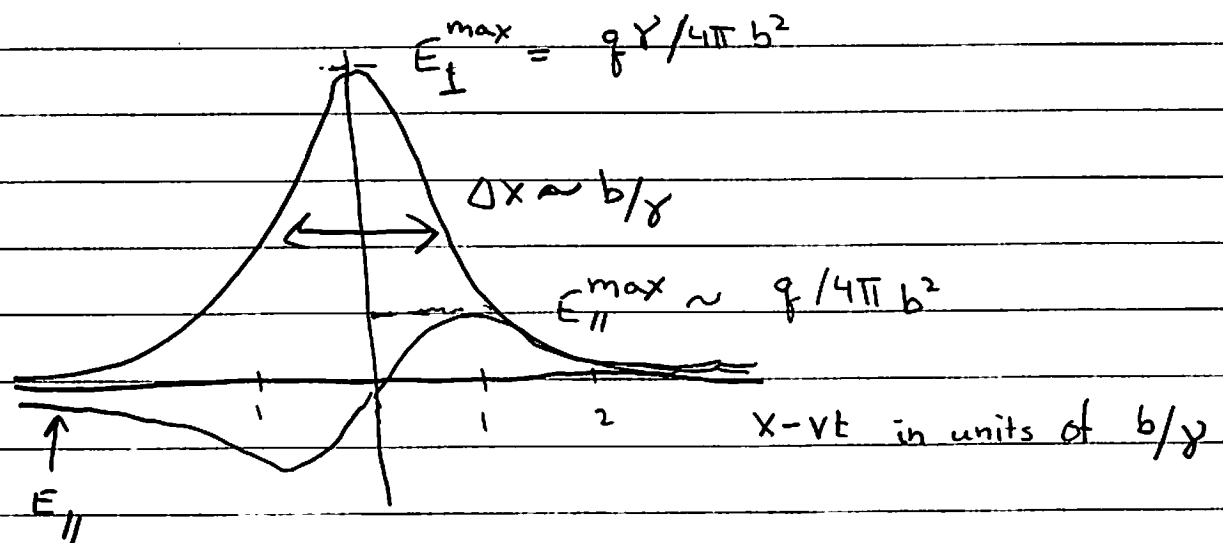 E⊥^max = qγ/4π b²
Δx ~ b/γ
E//^max ~ q/4π b²
1 1 2 x-vt in units of b/γ
E//